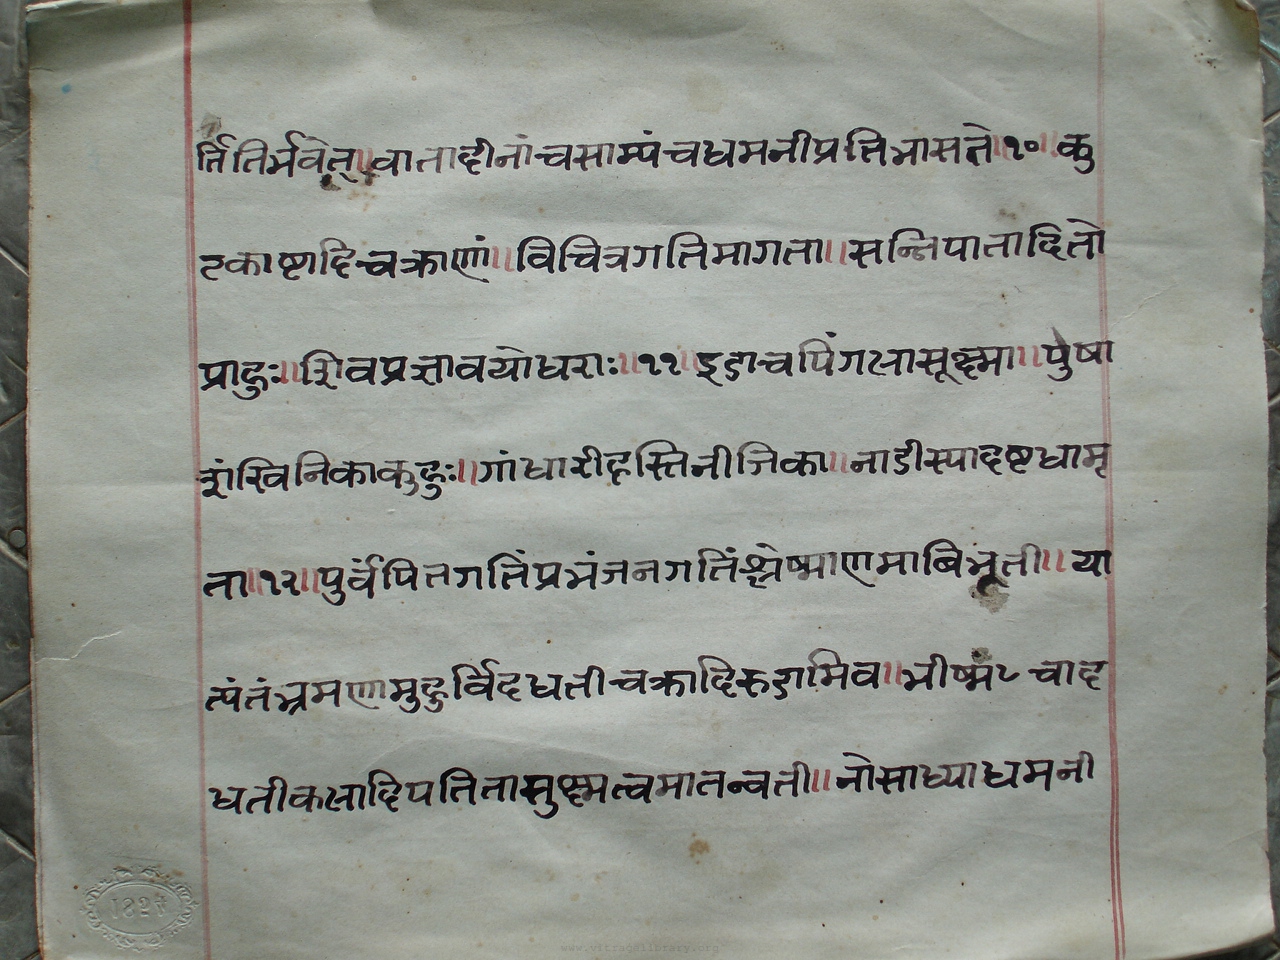 र्त्तितिर्भवेत्॥वातादीनांचसाम्यंचधमनीप्रतिभासते॥१०॥कु
टकाष्टादिचक्राणां॥विचित्रगतिमागता॥सन्निपातादितो
प्राहुः॥शिवप्रज्ञावयोधराः॥११॥इडाचपिंगलासूक्ष्मा॥पुषा
शंखिनिकाकुहुः॥गांधारीहस्तिनीजिका॥नाडीस्पादष्टधामृ
ता॥१२॥पुर्वंपितगतिंप्रभंजनगतिंश्लेष्माणमाबिभ्रूती॥या
त्पंतंभ्रमणामुहुर्विदधतीचक्रादिरुडामिव॥भीष्मंटचाह
धतीकलादिपतितासुक्ष्मत्वमातन्वती॥नोसाध्याधमनी
1824
www.vitragelibrary.org